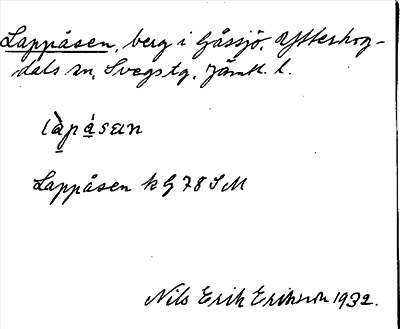 Lappåsen, berg i Gåssjö, Ytterhog-
dals sn, Svegs tg, Jämtl. l.
làpåsan
Lappåsen k G 78 S M
Nils Erik Erikson 1932.